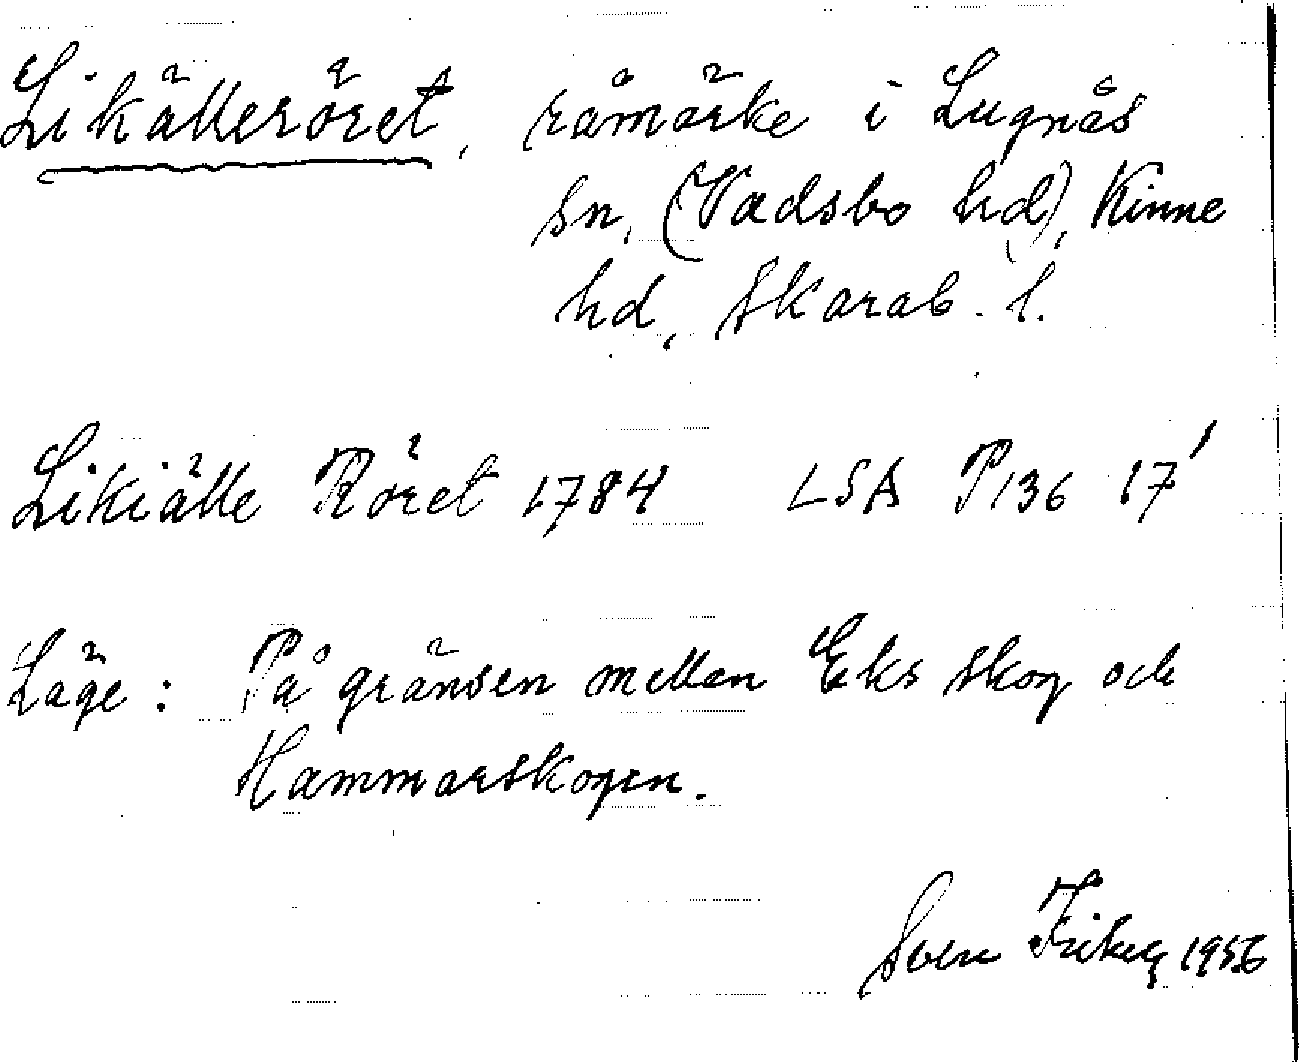 Likälleröret, råmärke i Lugnås
sn, (Vadsbo hd), Kinne
hd, Skarab. l.
Likiälle Röret 1784 LSA P136 17'
Läge: På gränsen mellan Eks skog och
Hammarskogen.
Sven 1956